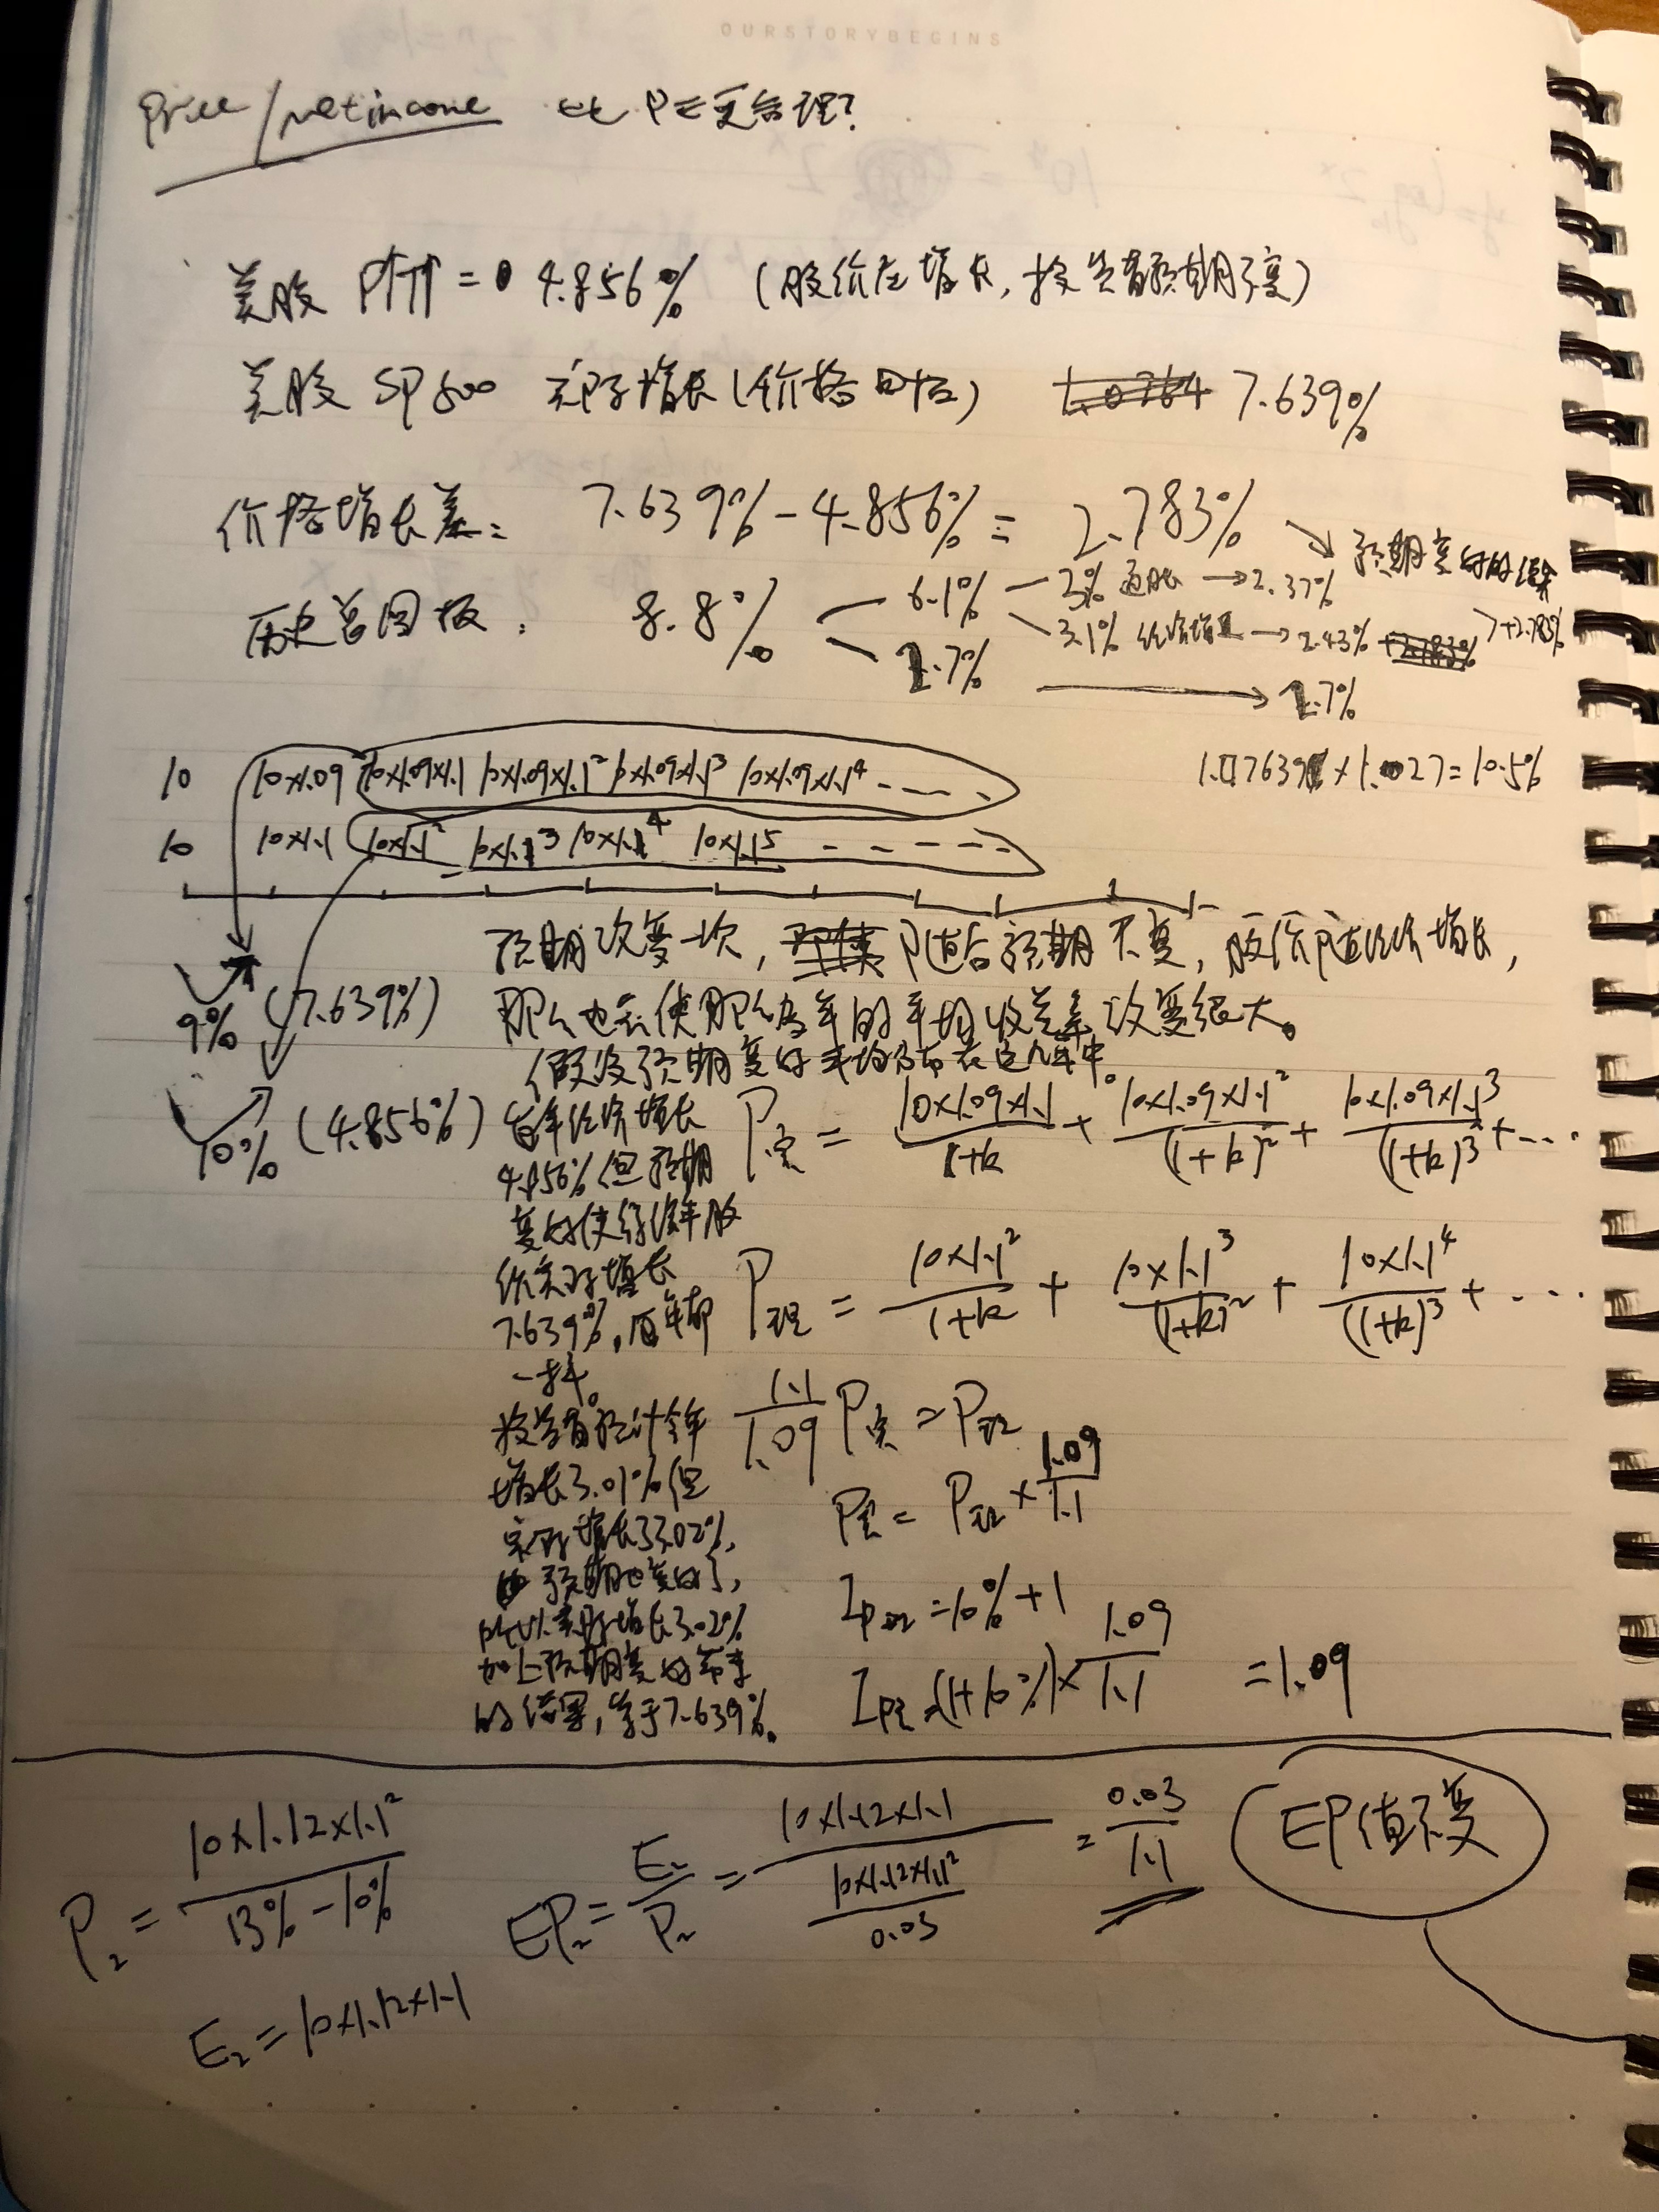 OURSTORYBEGINS
Price/netincome 比PE更合理?
美股 = 4.856% (股价在增长,投资者预期不变)
美股 SP500 实际增长(价格回报) 7.639%
价格增长差: 7.639%-4.856%= 2.783% → 预期变好的结果
历史总回报: 8.8% 6.1% — 3% 通胀 → 2.37%
3.1% 经济增长 → 2.43% 7+2.783%
2.7% → 2.7%
10 10×1.09 10×1.09×1.1 10×1.09×1.1² 10×1.09×1.1³ 10×1.09×1.1⁴ ----
1.07639 × 1.027 = 10.5%
10 10×1.1 10×1.1² 10×1.1³ 10×1.1⁴ 10×1.1⁵ -----
预期改变一次, 随后预期不变, 股价随经济增长,
9% (7.639%) 那么也会使那么多年的年均收益率改变很大。
假设预期变好平均分布在这几年中。
10% (4.856%)
每年经济增长
4.856%但预期
变好使得每年股
价实际增长
7.639%,每年都
一样。
投资者预计今年
增长3.01%但
实际增长3.02%,
预期也变好了,
所以实际增长3.02%
加上预期变好带来
的结果,等于7.639%。
P实 = 10×1.09×1.1/(1+k) + 10×1.09×1.1²/(1+k)² + 10×1.09×1.1³/(1+k)³ + ...
P理 = 10×1.1²/(1+k) + 10×1.1³/(1+k)² + 10×1.1⁴/(1+k)³ + ...
1.1/1.09 P实 = P理
P实 = P理 × 1.09/1.1
I_P理 = 10%+1
I_P实 = (1+10%) × 1.09/1.1 = 1.09
P₂ = 10×1.12×1.1²/(13%-10%)
EP₂ = E₂/P₂ = 10×1.12×1.1/(10×1.12×1.1²/0.03) = 0.03/1.1
EP值不变
E₂ = 10×1.12×1.1